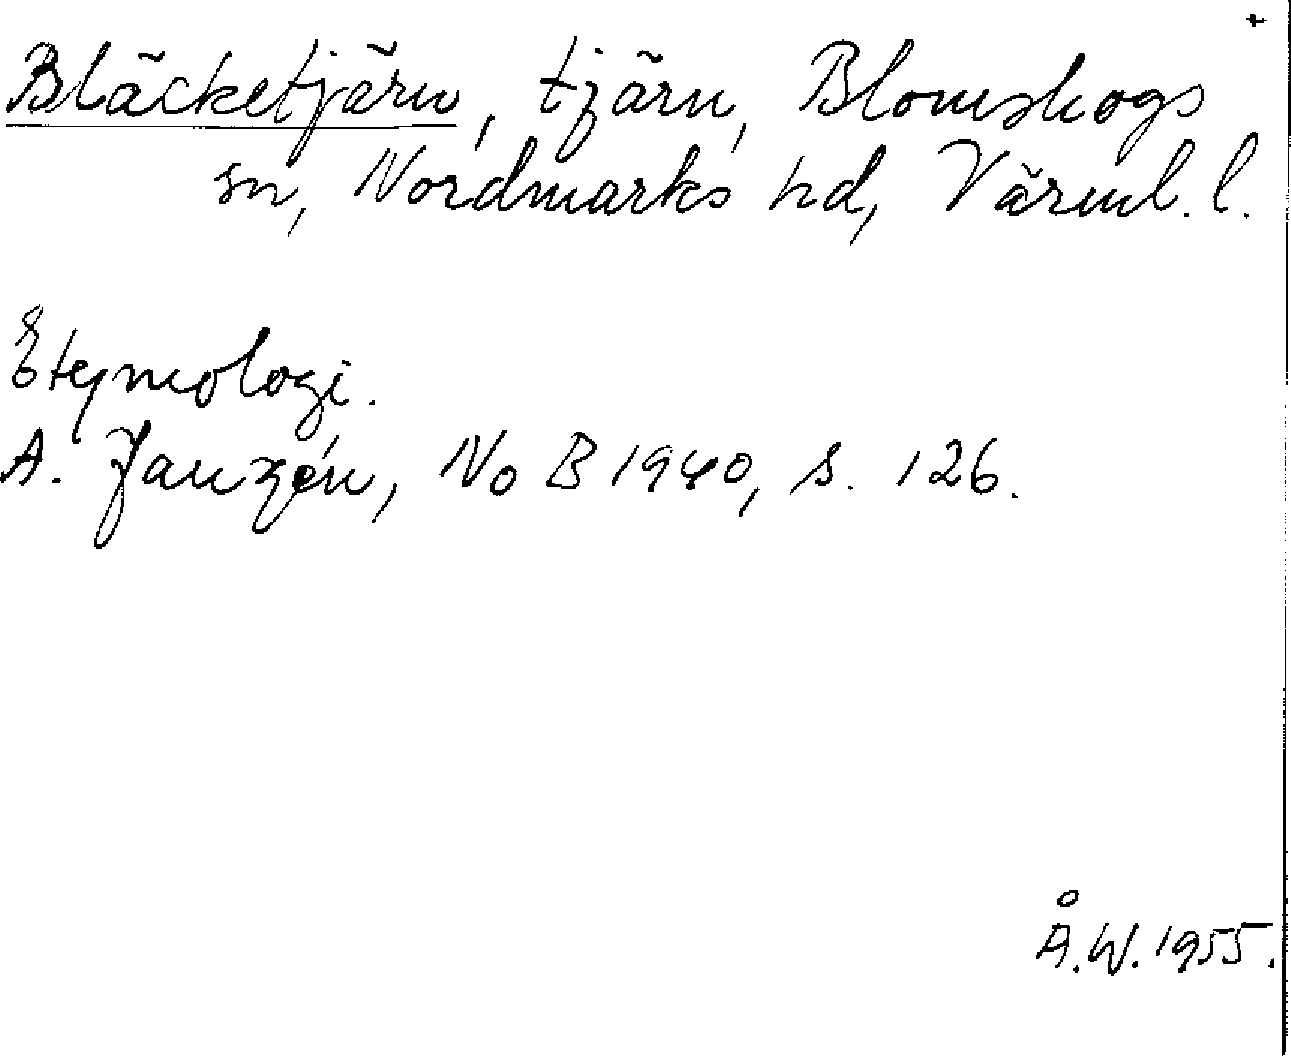 Bläcketjärn, tjärn, Blomskogs
sn, Nordmarks hd, Värml. l.
Etymologi.
A. Janzén, No B 1940, s. 126.
Å.W. 1955.